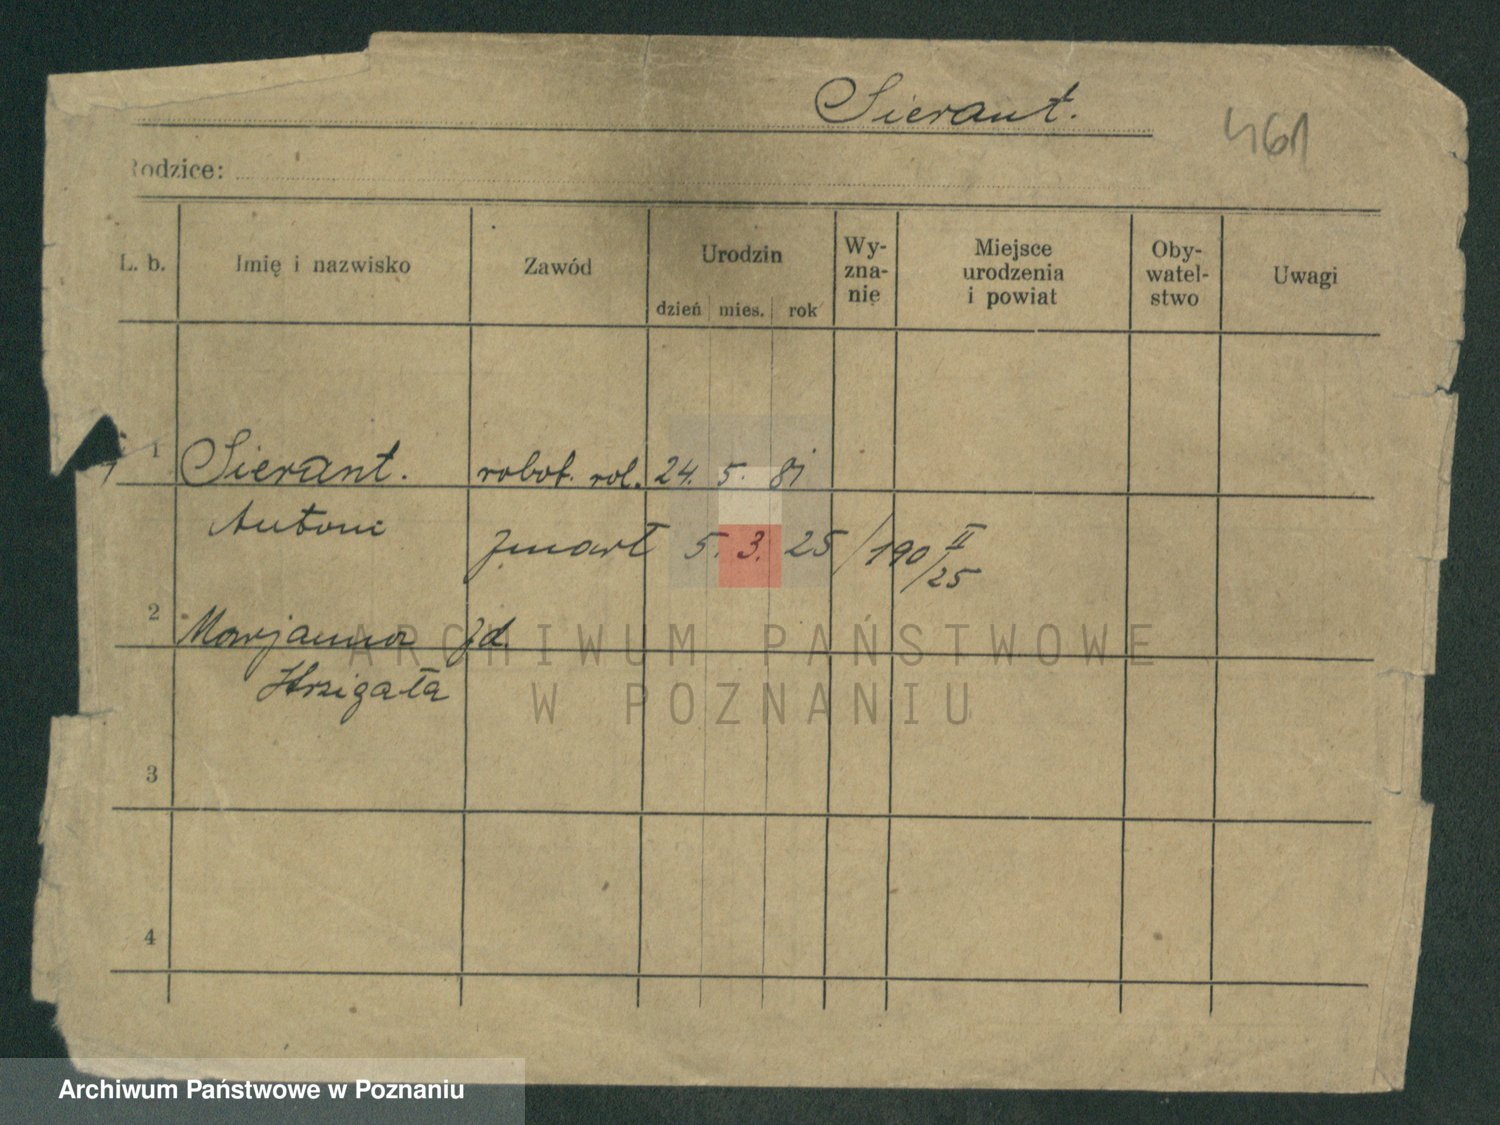 Sierant.
461
Rodzice:
L. b. Imię i nazwisko Zawód Urodzin dzień mies. rok Wy-zna-nię Miejsce urodzenia i powiat Oby-watel-stwo Uwagi
1 Sierant. robot. rol. 24. 5. 81
Antoni
zmarł 5. 3. 25 /190 II/25
2 Marjanna zd.
3
4
ARCHIWUM PAŃSTWOWE
W POZNANIU
Archiwum Państwowe w Poznaniu